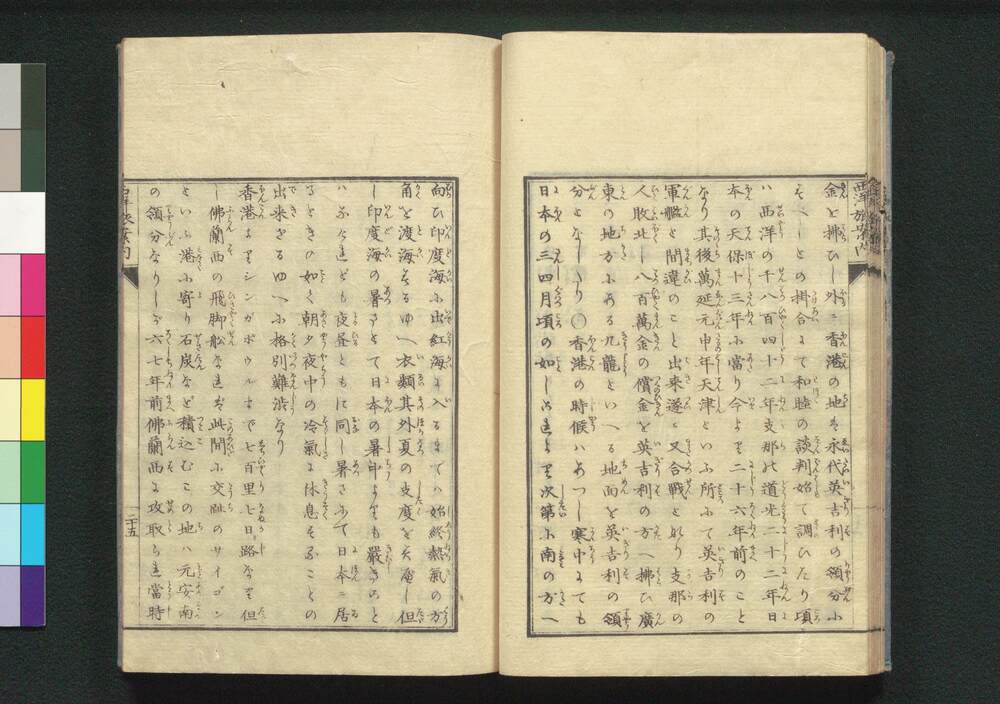 金を拂ひし外ニ香港の地を永代英吉利の領分ふ
そべしとの掛合ふて和睦の談判始て調ひたり頃
ハ西洋の千八百四十二年支那の道光二十二年日
本の天保十三年ふ當り今より二十六年前のこと
なり其後萬延元申年天津といふ所ふて英吉利の
軍艦と間違のこと出来遂ふ又合戦と成り支那の
人敗北し八百萬金の償金を英吉利の方へ拂ひ廣
東の地方ふある九龍といへる地面を英吉利の領
分となしたり〇香港の時候ハあつし寒中ふても
日本の三四月頃の如しこれより次第ふ南の方へ
向ひ印度海ふ出紅海ふ入るまでハ始終熱氣の方
角を渡海するゆへ衣類其外夏の支度をそ爲べし但
し印度海の暑さとて日本の暑中よりも嚴きこと
ハなけれども夜昼ともに同し暑さふて日本ニ居
るときの如く朝夕夜中の冷氣ふ休息することの
出来ざるゆへふ格別難渋なり
香港よりシンガポウルまで七百里七日路なり但
し佛蘭西の飛脚舩なれば此間ふ交趾のサイゴン
といふ港ふ寄り石炭など積込むこの地ハ元安南
の領分なりしが六七年前佛蘭西ふ攻取られ當時
西洋旅案内
二十五